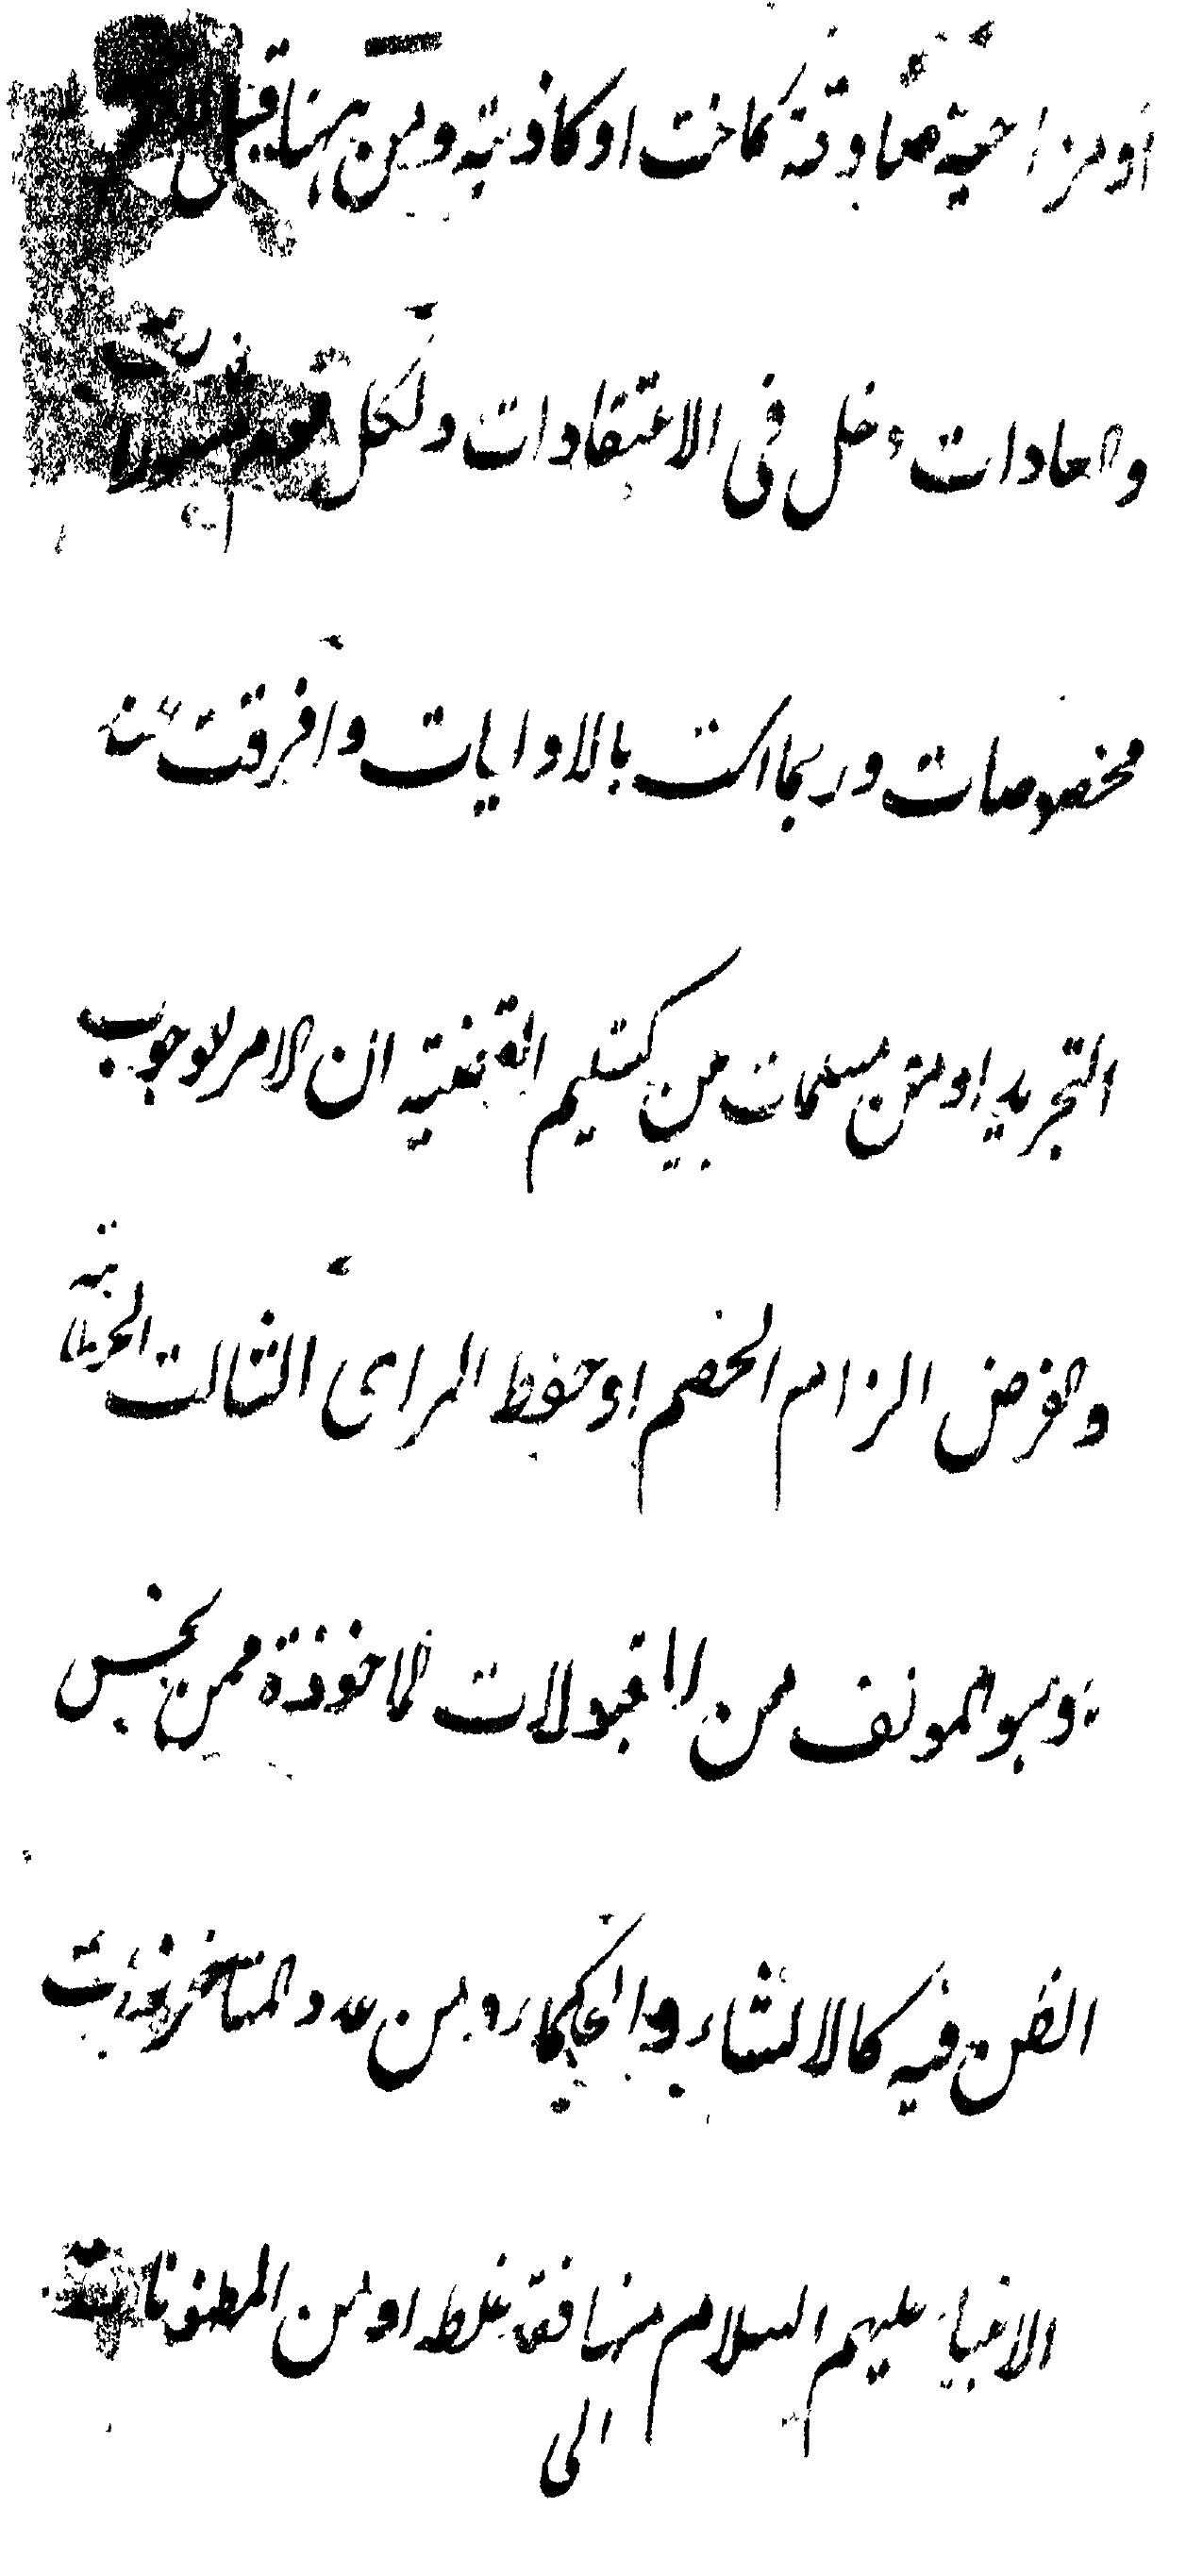 او مزاجية صادقة كانت او كاذبة ومن هنا قيل
والعادات دخل فى الاعتقادات ولكل قوم
مخصوصات وربما اكت بالاوايات وافرقت
التجريد او من مسلمات بين كتسليم الفقيه ان الامر للوجوب
والغرض الزام الخصم او حفظ المراى الثالث الخطابة
وهو المولف من المقبولات الماخوذة ممن يحسن
الظن فيه كالاولياء والحكماء ومن عد الماخوذات
الانبياء عليهم السلام منها فقد غلط او من المظنونات
الى